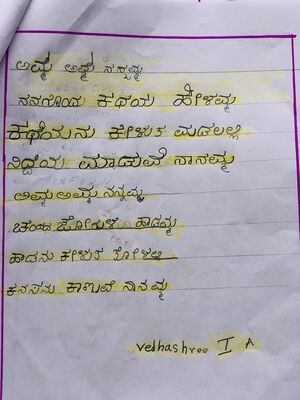 ಅಮ್ಮ ಅಮ್ಮ ನನ್ನಮ್ಮ
ನನಗೊಂದು ಕಥೆಯ ಹೇಳಮ್ಮ
ಕಥೆಯನು ಕೇಳುತ ಮಡಲಲ್ಲಿ
ನಿದ್ದೆಯ ಮಾಡುವೆ ನಾನಮ್ಮ
ಅಮ್ಮ ಅಮ್ಮ ನನ್ನಮ್ಮ
ಚಂದದ ಜೋಗುಳ ಹಾಡಮ್ಮ
ಹಾಡನು ಕೇಳುತ ತೋಳಲಿ
ಕನಸನು ಕಾಣುವೆ ನಾನಮ್ಮ
Vedhashree I A